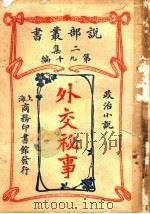 說部叢書
二集
第九十編
政治小說
外交秘事
上海
商務印書館發行